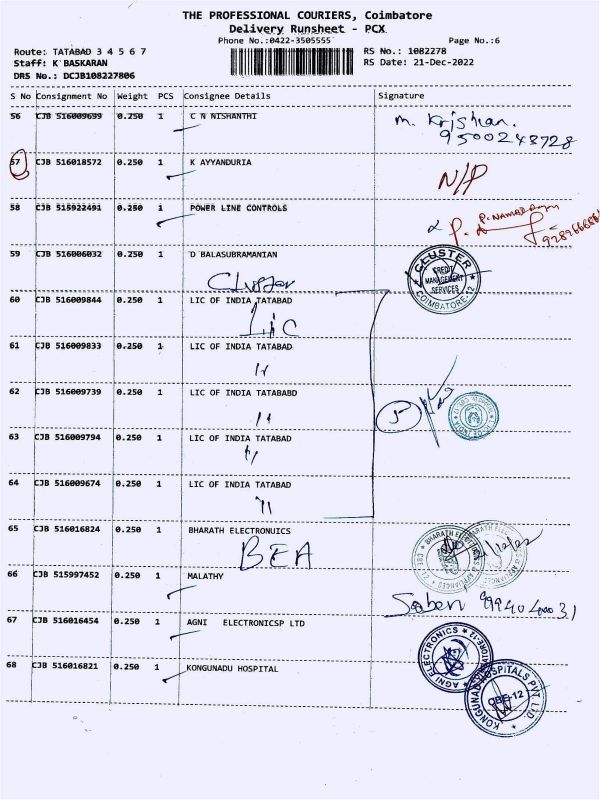 THE PROFESSIONAL COURIERS, Coimbatore
Delivery Runsheet - PCX
Phone No.:0422-3505555 Page No.:6
Route: TATABAD 3 4 5 6 7 RS No.: 1082278
Staff: K BASKARAN RS Date: 21-Dec-2022
DRS No.: DCJB108227806
S No Consignment No Weight PCS Consignee Details Signature
56 CJB 516009699 0.250 1 C N NISHANTHI
M. Krishnan.
9500243728
57 CJB 516018572 0.250 1 K AYYANDURIA
N/P
58 CJB 515922491 0.250 1 POWER LINE CONTROLS
59 CJB 516006032 0.250 1 D BALASUBRAMANIAN
Cluster
CLUSTER
CREDIT
MANAGEMENT
SERVICES
COIMBATORE-12
60 CJB 516009844 0.250 1 LIC OF INDIA TATABAD
LIC
61 CJB 516009833 0.250 1 LIC OF INDIA TATABAD
62 CJB 516009739 0.250 1 LIC OF INDIA TATABABD
5
63 CJB 516009794 0.250 1 LIC OF INDIA TATABAD
64 CJB 516009674 0.250 1 LIC OF INDIA TATABAD
65 CJB 516016824 0.250 1 BHARATH ELECTRONUICS
BEA
66 CJB 515997452 0.250 1 MALATHY
67 CJB 516016454 0.250 1 AGNI ELECTRONICSP LTD
AGNI ELECTRONICS
68 CJB 516016821 0.250 1 KONGUNADU HOSPITAL
KONGUNADU HOSPITALS PVT LTD.
CBE-12